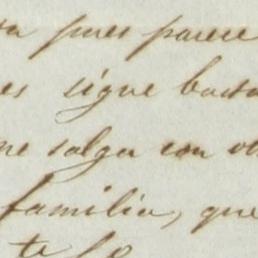 pues parece
es sigue basta
me salga con ot
familia, que
te